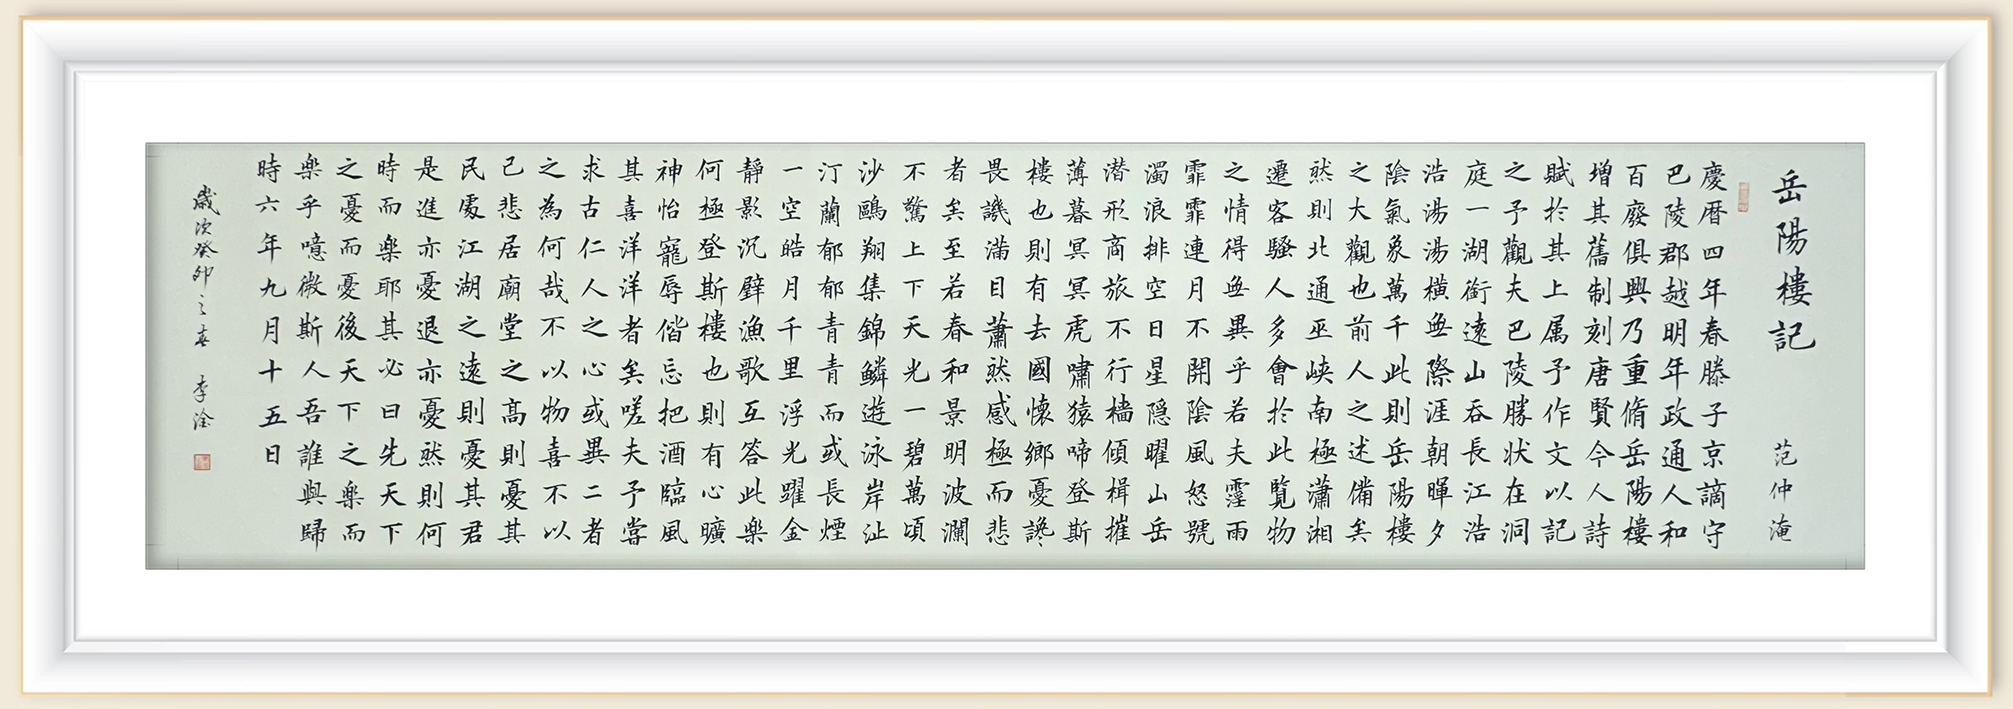 岳陽樓記
范仲淹
慶曆四年春滕子京謫守
巴陵郡越明年政通人和
百廢俱興乃重脩岳陽樓
增其舊制刻唐賢今人詩
賦於其上属予作文以記
之予觀夫巴陵勝状在洞
庭一湖銜遠山吞長江浩
浩湯湯橫無際涯朝暉夕
陰氣象萬千此則岳陽樓
之大觀也前人之述備矣
然則北通巫峽南極瀟湘
遷客騷人多會於此覽物
之情得無異乎若夫霪雨
霏霏連月不開陰風怒號
濁浪排空日星隱曜山岳
潛形商旅不行檣傾楫摧
薄暮冥冥虎嘯猿啼登斯
樓也則有去國懷鄉憂讒
畏譏滿目蕭然感極而悲
者矣至若春和景明波瀾
不驚上下天光一碧萬頃
沙鷗翔集錦鱗遊泳岸沚
汀蘭郁郁青青而或長煙
一空皓月千里浮光躍金
靜影沉璧漁歌互答此樂
何極登斯樓也則有心曠
神怡寵辱偕忘把酒臨風
其喜洋洋者矣嗟夫予嘗
求古仁人之心或異二者
之為何哉不以物喜不以
己悲居廟堂之高則憂其
民處江湖之遠則憂其君
是進亦憂退亦憂然則何
時而樂耶其必曰先天下
之憂而憂後天下之樂而
樂乎噫微斯人吾誰與歸
時六年九月十五日
歲次癸卯之春 李淦